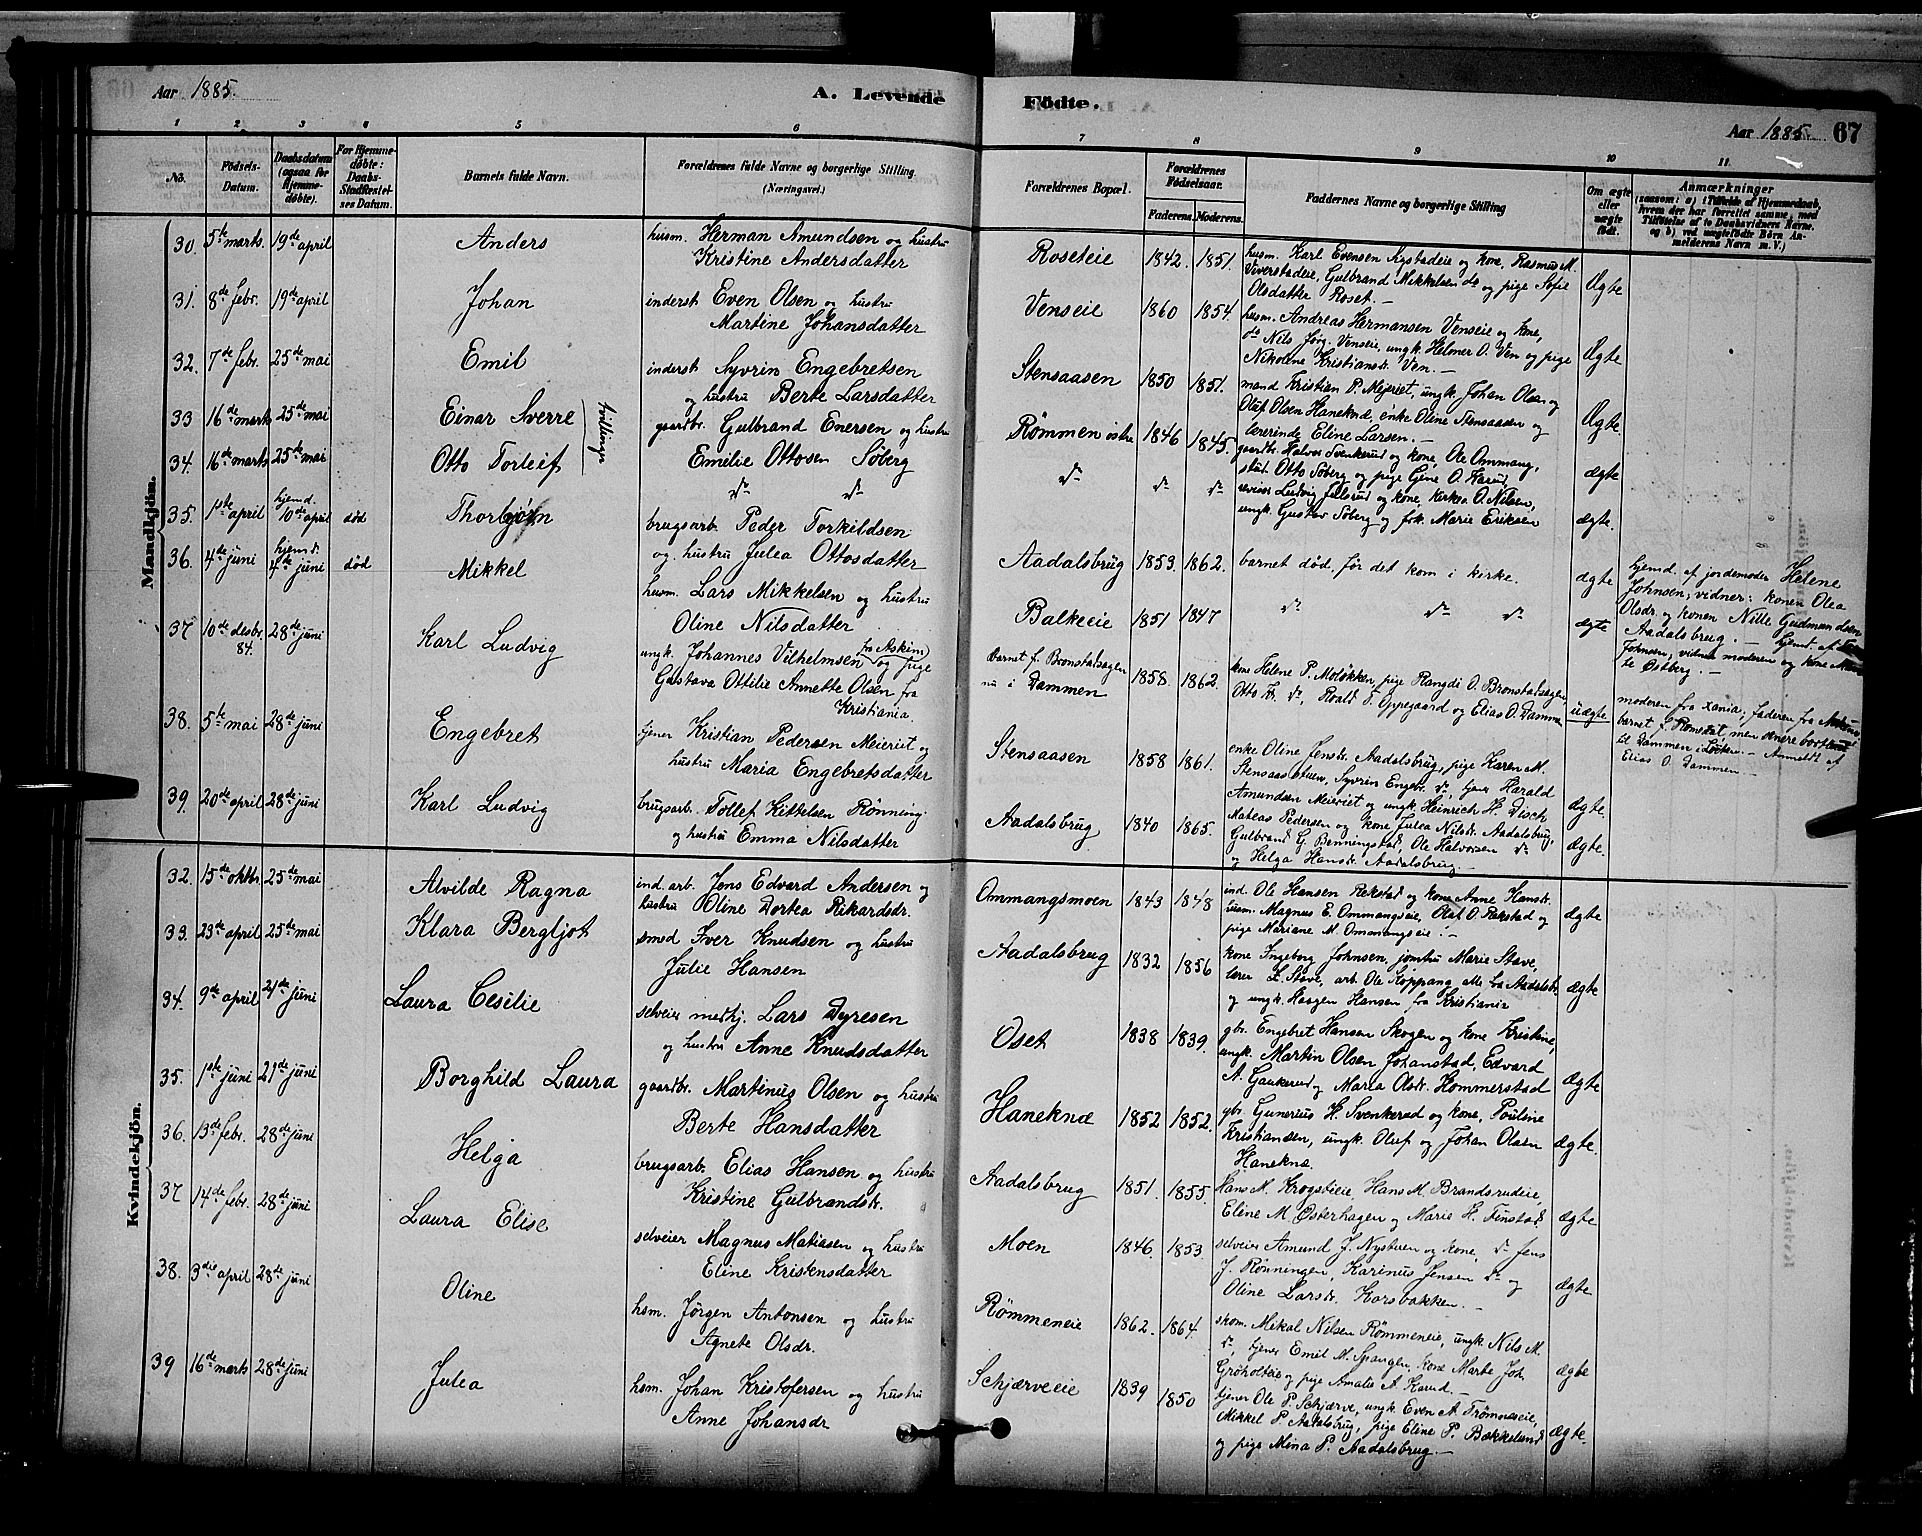 Aar 1885.
A. Levende
1 2 3 4 5 6
No. Födsels-Datum. Daabsdatum (ogsaa for Hjemmedöbte). For Hjemmedöbte: Daabs-Stadfæstelses Datum. Barnets fulde Navn. Forældrenes fulde Navne og borgerlige Stilling. (Næringsvei.)
Mandkjön.
30. 5te marts. 19de april Anders husm. Herman Amundsen og hustru
Kristine Andersdatter
31. 8de febr. 19de april Johan inderst Even Olsen og hustru
Martine Johansdatter
32. 7de febr. 25de mai Emil inderst Syvrin Engebretsen
og hustru Berte Larsdatter
33 16de marts 25de mai Einar Sverre tvillinger gaardbr. Gulbrand Enersen og hustru
34. 16de marts 25de mai Otto Torleif Emilie Ottosen Søberg
do do
35. 1ste april hjemd. 10de april død Thorbjørn brugsarb. Peder Torkildsen
og hustru Julea Ottosdatter
36. 4de juni hjemd. 4de juni død Mikkel husm. Lars Mikkelsen og hustru
Oline Nilsdatter
37 10de desbr. 84. 28de juni Karl Ludvig ungk. Johannes Vilhelmsen fra Askim og pige
Gustava Ottilie Annette Olsen fra
Kristiania.
38. 5te mai 28de juni Engebret tjener Kristian Pedersen Meieriet og
hustru Maria Engebretsdatter
39. 20de april 28de juni Karl Ludvig brugsarb. Tollef Kittelsen Rønning
og hustru Emma Nilsdatter
Kvindekjön.
32. 15de oktbr. 25de mai Alvilde Ragna ind. arb. Jens Edvard Andersen og
hustru Oline Dortea Rikardsdr.
33. 23de april 25de mai Klara Bergljot smed Iver Knudsen og hustru
Julie Hansen
34. 9de april 21de juni Laura Cesilie selveier medhj. Lars Dyresen
og hustru Anne Knudsdatter
35. 1ste juni 21de juni Borghild Laura gaardbr. Martinus Olsen og hustru
Berte Hansdatter
36. 13de febr. 28de juni Helga brugsarb. Elias Hansen og hustru
Kristine Gulbrandsdr.
37 14de febr. 28de juni Laura Elise selveier Magnus Matiasen og hustru
Eline Kristensdatter
38. 3die april 28de juni Oline hsm. Jørgen Antonsen og hustru
Agnete Olsdr.
39 16de marts 28de juni Julea hsm. Johan Kristofersen og hustru
Anne Johansdr
Födte.
Aar 1885. 67
7 8 9 10 11
Forældrenes Bopæl. Forældrenes Födselsaar. Faderens. Moderens. Faddernes Navne og borgerlige Stilling Om ægte eller uægte födt. Anmærkninger
(saasom: a) i Tilfælde af Hjemmedaab, hvem der har forrettet samme, med Tilföielse af to Daabsvidners Navne. og b) ved uægtefödte Börn Anmelderens Navn m. V.)
Roseteie 1842. 1851. husm. Karl Evensen Nystadeie og kone, Rasmus M.
Viverstadeie, Gulbrand Mikkelsen do og pige Sofie
Olsdatter Roset. – Ægte
Venseie 1860 1854. husm. Andreas Hermansen Venseie og kone,
do Nils Jørg. Venseie, ungk. Helmer O. Ven og pige
Nikoline Kristiansdr. Ven. – Ægte
Stensaasen 1850 1851. mand Kristian P. Mejeriet, ungk. Johan Olsen og
Oluf Olsen Haneknæ, enke Oline Stensaasen og
lærerinde Eline Larsen. – Ægte.
Rømmen østre 1846 1845. gaardbr. Halvor Svenkerud og kone, Ole Ommang,
stud. Otto Søberg og pige Gine O. Karud, ægte
do do do revisor Ludvig Julsrud og kone, kirkes. O. Nilsen,
ungk. Gustav Søberg og frk. Marie Eriksen ægte.
Aadalsbrug 1853. 1862. barnet død før det kom i kirke. ægte hjemd. af jordemoder Helene
Johnsen; vidner: konen Olea
Olsdr. og konen Nille Gudmundsen
Aadalsbrug. –
Balkeeie 1851 1847 do do do ægte hjemd. af
Johnsen; vidner moderen og kone
Østberg. –
barnet f. Bronstadsagen
nu i Dammen 1858. 1862. kone Helene P. Moløkken, pige Rangdi O. Bronstadsagen,
Otto do, Roald T. Oppegaard og Elias O. Dammen uægte moderen fra Xania; faderen fra Askim
barnet f. Romsdat, men senere bortsat
til Dammen i Løiten. – Anmeldt af
Elias O. Dammen –
Stensaasen 1858 1861. enke Oline Jensdr. Aadalsbrug, pige Karen M.
Stensaasstuen, Syvrin Engebr. do, tjener Harald
Amundsen Meieriet og ungk. Heinrich H. Disch ægte.
Aadalsbrug 1840 1865. Mateas Pedersen og kone Julea Nilsdr. Aadalsbrug,
Gulbrand G. Benningstad, Ole Halvorsen do
og Helga Hansdr. Aadalsbrug. – ægte.
Ommangsmoen 1843 1848 ind. Ole Hansen Rekstad og kone Anne Hansdr.
husm. Magnus E. Ommangseie, Olaf O. Rekstad og
pige Mariane M. Ommangseie. – ægte
Aadalsbrug 1832 1856 kone Ingeborg Johnsen, jomfru Marie Stave,
lærer L. Stave, arb. Ole Koppang alle fra Aadalsbr.
og ungk. Haagen Hansen fra Kristiania ægte
Oset 1838 1839. gbr. Engebret Hansen Skogen og kone Kristine,
ungk. Martin Olsen Johanstad, Edvard
A. Gaukerud og Maria Olsdr. Hommerstad ægte
Haneknæ 1852 1852. gbr. Gunerius H. Svenkerud og kone, Pouline
Kristiansen, ungk. Oluf og Johan Olsen
Haneknæ. ægte.
Aadalsbrug 1851. 1855. Hans M. Krogstieie, Hans M. Brandsrudeie,
Eline M. Østerhagen og Marie H. Finstad ægte
Moen 1846. 1853. selveier Amund J. Nystuen og kone, do Jens
J. Rønningen, Karinus Jensen do og
Oline Larsdr. Korsbakken. – ægte
Rømmeneie 1862. 1864. skom. Mikal Nilsen Rømmeneie, ungk. Nils M.
do, tjener Emil M. Spangen, kone Marte Joh.
Grøholteie og pige Amalie A. Karud. – ægte
Schjærveeie 1839 1850 tjener Ole P. Schjærve, ungk. Even A. Trømneseie,
Mikkel P. Aadalsbrug, pige Eline P. Bækkelund
og pige Mina P. Aadalsbrug. – ægte.